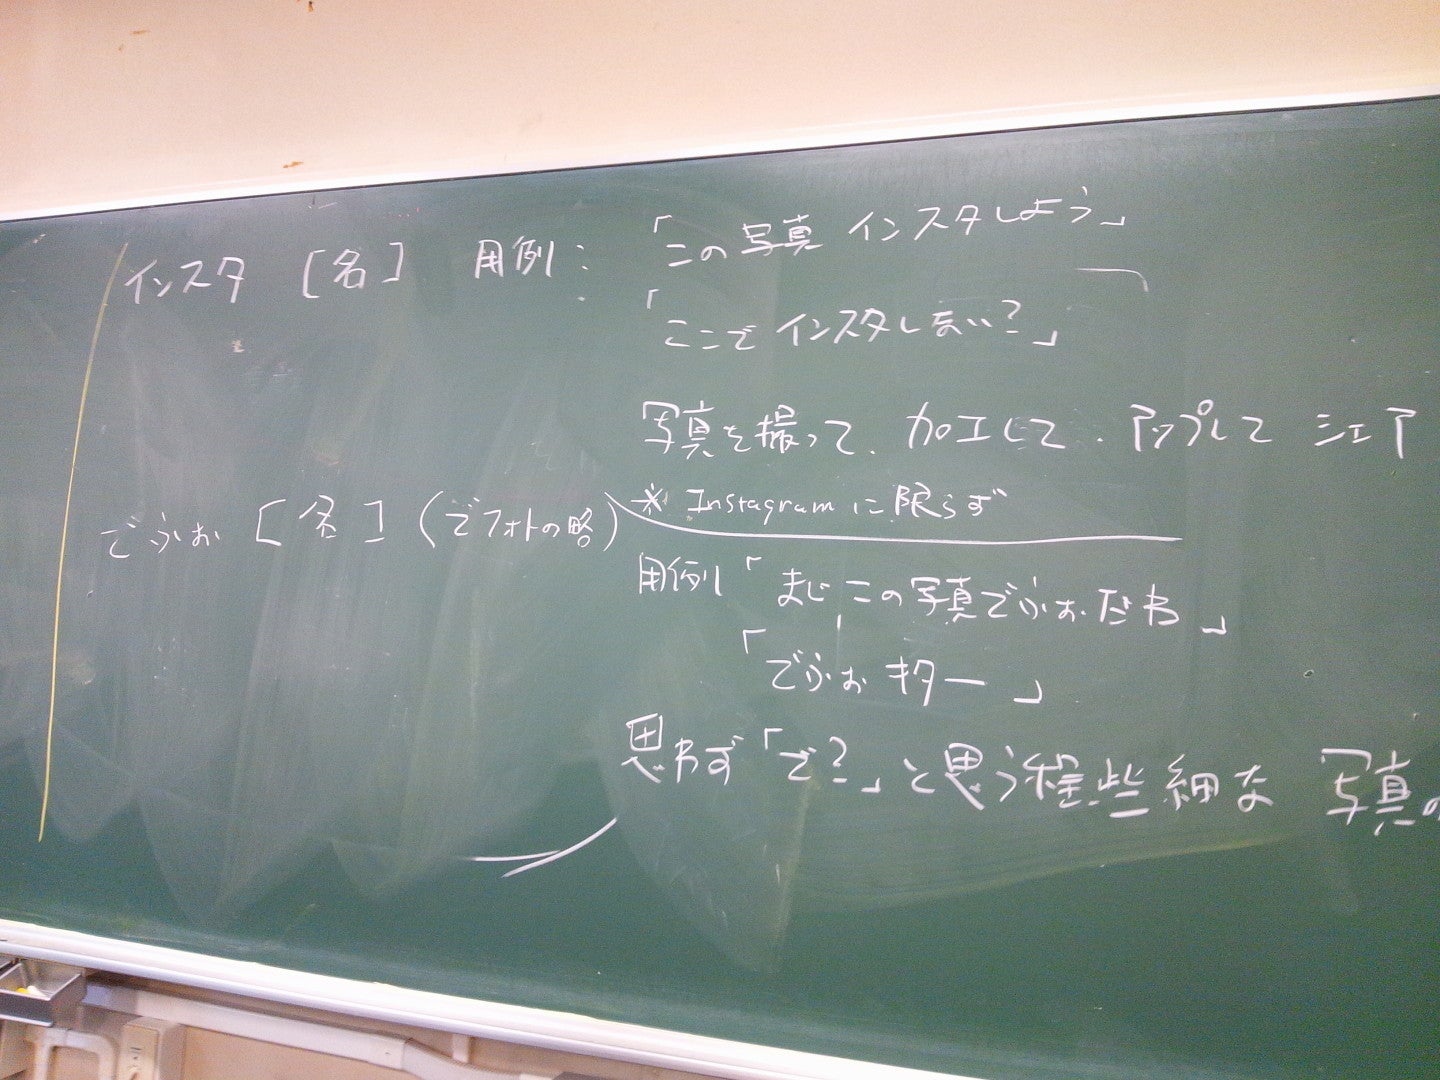 インスタ [名] 用例: 「この写真 インスタしよう」
「ここで インスタしまい?」
写真を撮って、加工して、アップして シェア
※ Instagramに限らず
でふぉ [名] (でフォトの略)
用例 「まじこの写真でふぉだわ」
「でふぉ キター」
思わず「で?」と思う程些細な 写真の